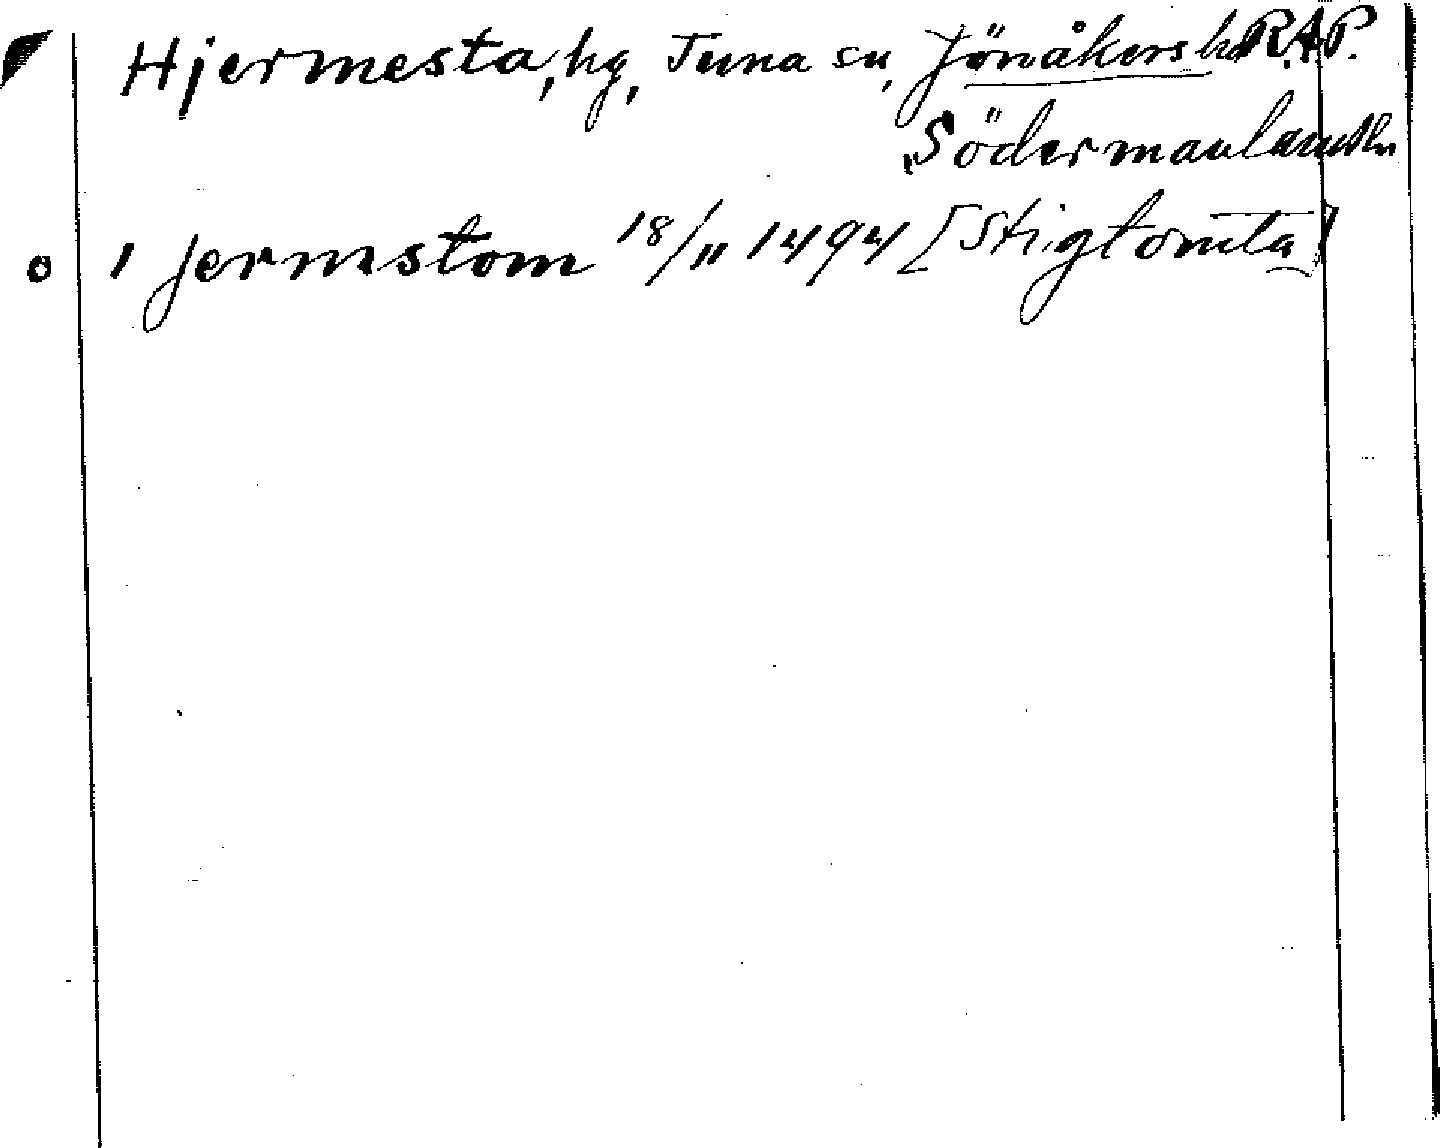 Hjermesta, hg, Tuna sn, Jönåkers hd R.A.P.
Södermanlands ln
i jermstom 18/11 1494 [Stigtomta]